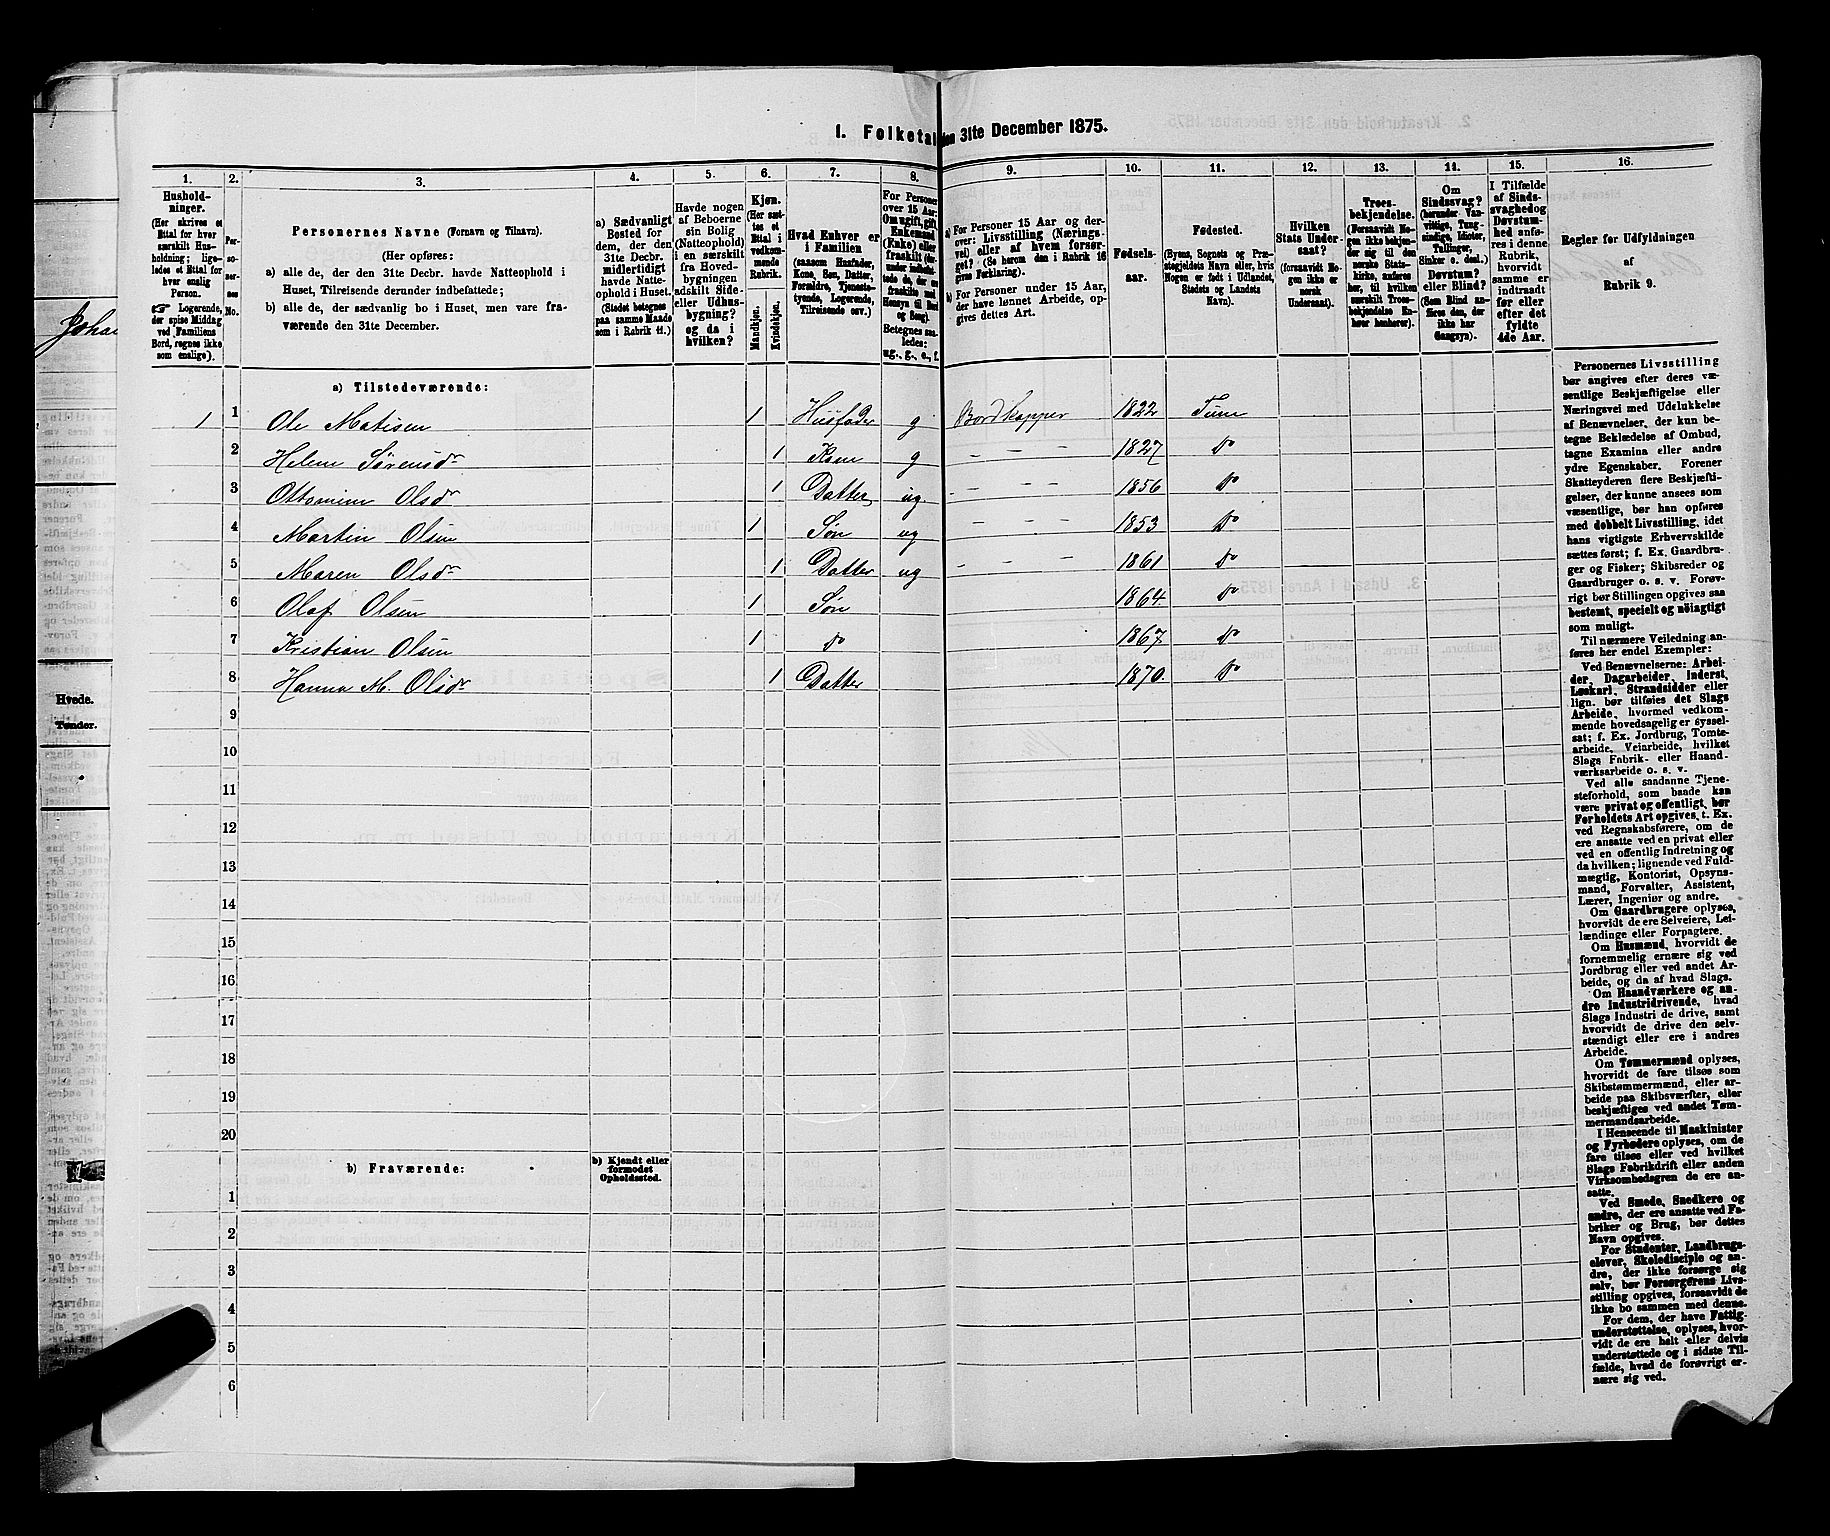 1. Folketal den 31te December 1875.
1. 2. 3. 4. 5. 6. 7. 8. 9. 10. 11. 12. 13. 14. 15. 16.
Hushold-
ninger.
(Her skrives et
Ettal for hver
særskilt Hus-
holdning; lige-
ledes et Ettal for
hver enslig
Person.
☞ Logerende,
der spise Middag
ved Familiens
Bord, regnes ikke
som enslige).
Per-
so-
ner-
nes
No.
Personernes Navne (Fornavn og Tilnavn).
(Her opføres:
a) alle de, der den 31te Decbr. havde Natteophold i
Huset, Tilreisende derunder indbefattede;
b) alle de, der sædvanlig bo i Huset, men vare fra-
værende den 31te December.
a) Sædvanligt
Bosted for
dem, der den
31te Decbr.
midlertidigt
havde Natte-
ophold i Huset.
(Stedet betegnes
paa samme Maade
som i Rubrik 11.)
Havde nogen
af Beboerne
sin Bolig
(Natteophold)
i en særskilt
fra Hoved-
bygningen
adskilt Side-
eller Udhus-
bygning?
og da i
hvilken?
Kjøn.
(Her sæt-
tes et
Ettal i
vedkom-
mende
Rubrik.
Mandkjøn.
Kvindekjøn.
Hvad Enhver er
i Familien
(saasom Husfader,
Kone, Søn, Datter,
Forældre, Tjeneste-
tyende, Logerende,
Tilreisende osv.)
For Personer
over 15 Aar:
Om ugift, gift,
Enkemand
(Enke) eller
fraskilt
Betegnes saa-
ledes:
ug., g., e., f.
a) For Personer 15 Aar og der-
over: Livsstilling (Nærings-
vei) eller af hvem forsør-
get? (Se herom den i Rubrik 16
givne Forklaring).
b) For Personer under 15 Aar,
der have lønnet Arbeide, op-
gives dettes Art.
Fødsels-
aar.
Fødested.
(Byens, Sognets og Præ-
stegjeldets Navn eller, hvis
Nogen er født i Udlandet,
Stedets og Landets
Navn).
Hvilken
Stats Under-
saat?
(forsaavidt No-
gen ikke er
norsk
Undersaat).
Troes-
bekjendelse.
(Forsaavidt No-
gen ikke bekjen-
der sig til den
norske Stats-
kirke, anføres
her, til hvilken
særskilt Troes-
bekjendelse En-
hver henhører).
Om
Sindssvag?
(herunder Van-
vittige, Tung-
sindige, Idioter,
Tullinger,
Sinker o. desl.)
Døvstum?
eller Blind?
(Som Blind an-
føres den, der
ikke har
Gangsyn).
I Tilfælde
af Sinds-
svaghed og
Døvstum-
hed anfø-
res i denne
Rubrik,
hvorvidt
samme er
indtraadt
før eller
efter det
fyldte
4de Aar.
Regler for Udfyldningen
af
Rubrik 9.
a) Tilstedeværende:
1 1 Ole Matisen 1 Husfader g Bordkapper 1822 Tune
2 Helene Sørensdr 1 Kone g - - - 1827 Do
3 Ottomine Olsdr 1 Datter ug. - - - 1856 Do
4 Martin Olsen 1 Søn ug - - - 1853 Do
5 Maren Olsdr 1 Datter ug - - 1861 Do
6 Olaf Olsen 1 Søn 1864. Do
7 Kristian Olsen 1 do 1867. Do
8 Hanna M. Olsdr 1 Datter 1870. Do
9
10
11
12
13
14
15
16
17
18
19
20
b) Fraværende:
b) Kjendt eller
formodet
Opholdssted.
1
2
3
4
5
6
Personernes Livsstilling
bør angives efter deres væ-
sentlige Beskjæftigelse eller
Næringsvei med Udelukkelse
af Benævnelser, der kun be-
tegne Beklædelse af Ombud,
tagne Examina eller andre
ydre Egenskaber. Forener
Skatteyderen flere Beskjæfti-
gelser, der kunne ansees som
væsentlige, bør han opføres
med dobbelt Livsstilling, idet
hans vigtigste Erhvervskilde
sættes først; f. Ex. Gaardbru-
ger og Fisker; Skibsreder og
Gaardbruger o. s. v. Forøv-
rigt bør Stillingen opgives saa
bestemt, specielt og nöiagtigt
som muligt.
Til nærmere Veiledning an-
føres her endel Exempler:
Ved Benævnelserne: Arbei-
der, Dagarbeider, Inderst,
Løskarl, Strandsidder eller
lign. bør tilføies det Slags
Arbeide, hvormed vedkom-
mende hovedsagelig er syssel-
sat; f. Ex. Jordbrug, Tomte-
arbeide, Veiarbeide, hvilket
Slags Fabrik- eller Haand-
værksarbeide o. s. v.
Ved alle saadanne Tjene-
steforhold, som baade kan
være privat og offentligt, bør
Forholdets Art opgives, t. Ex.
ved Regnskabsførere, om de
ere ansatte ved en privat eller
ved en offentlig Indretning og
da hvilken; lignende ved Fuld-
mægtig, Kontorist, Opsyns-
mand, Forvalter, Assistent,
Lærer, Ingeniør og andre.
Om Gaardbrugere oplyses,
hvorvidt de ere Selveiere, Lei-
lændinge eller Forpagtere.
Om Husmænd, hvorvidt de
fornemmelig ernære sig ved
Jordbrug eller ved andet Ar-
beide, og da af hvad Slags.
Om Haandværkere og an-
dre Industridrivende, hvad
Slags Industri de drive, samt
hvorvidt de drive den selv-
stændigt eller ere i andres
Arbeide.
Om Tømmermænd oplyses,
hvorvidt de fare tilsøs som
Skibstømmermænd, eller ar-
beide paa Skibsværfter, eller
beskjæftiges ved andet Tøm-
mermandsarbeide.
I Henseende til Maskinister
og Fyrbødere oplyses, om de
fare tilsøs eller ved hvilket
Slags Fabrikdrift eller anden
Virksomhedsgren de ere an-
satte.
Ved Smede, Snedkere og
andre, der ere ansatte ved Fa-
briker og Brug, bør dettes
Navn opgives.
For Studenter, Landbrugs-
elever, Skoledisciple og an-
dre, der ikke forsørge sig
selv, bør Forsørgerens Livs-
stilling opgives, forsaavidt de
ikke bo sammen med denne.
For dem, der have Fattig-
understøttelse, oplyses, hvor-
vidt de ere helt eller delvis
understøttede og i sidste Til-
fælde, hvad de forøvrigt er-
nære sig ved.
Hvede.
Tønder.